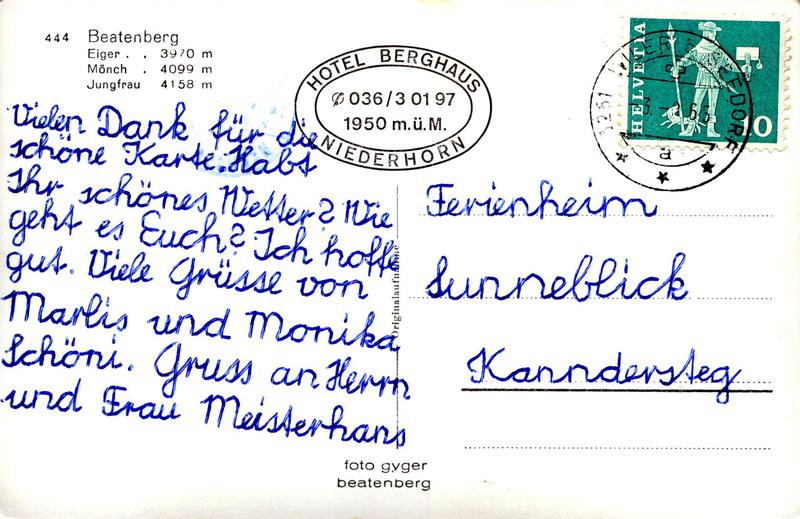 444 Beatenberg
Eiger . . 3970 m
Mönch . 4099 m
Jungfrau 4158 m
HOTEL BERGHAUS
036/3 01 97
1950 m.ü.M.
NIEDERHORN
HELVETIA
a
Vielen Dank für die
schöne Karte. Habt
Ihr schönes Wetter? Wie
geht es Euch? Ich hoffe
gut. Viele Grüsse von
Marlis und Monika
Schöni. Gruss an Herrn
und Frau Meisterhans
Originalaufnahme
Ferienheim
Sunneblick
Kanndersteg
foto gyger
beatenberg